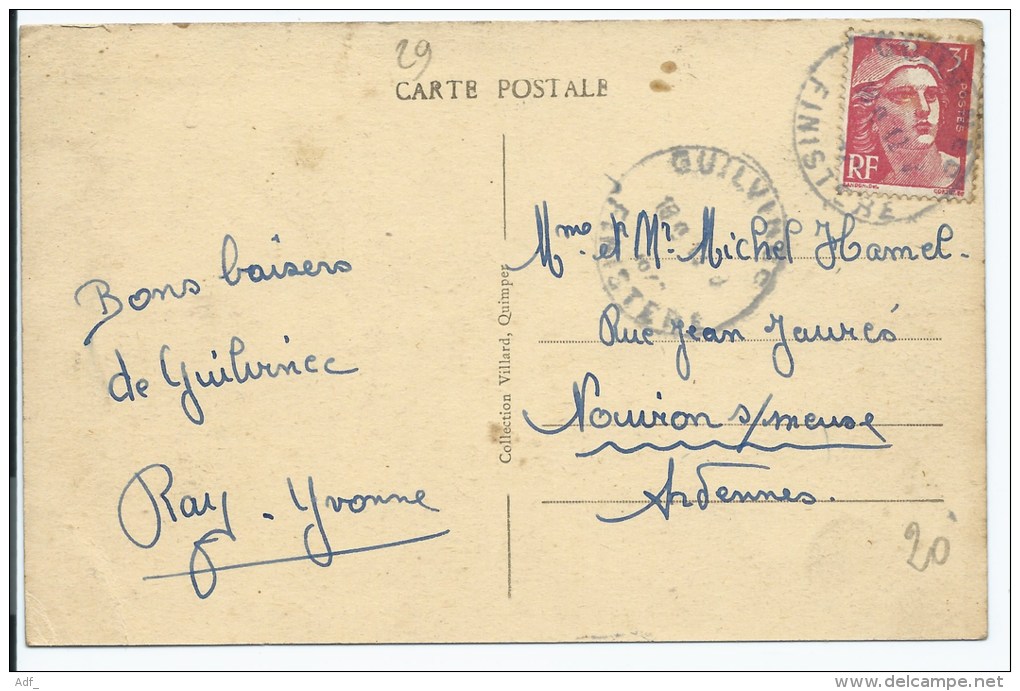 29
CARTE POSTALE
3f
POSTES
RF
GUILVINEC
FINISTERE
GUILVINEC
FINISTERE
Bons baisers
de Guilvinec
Ray. Yvonne
Collection Villard, Quimper
Mme et Mr Michel Hamel.
Rue Jean Jaurès
Nouvion s/meuse
Ardennes.
20
Adf_
www.delcampe.net